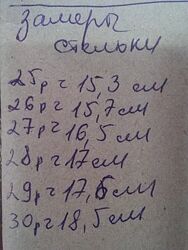 Замеры
стельки
25р-15,3 см
26р-15,7см
27р-16,5см
28р-17см
29р-17,6см
30р-18,5см